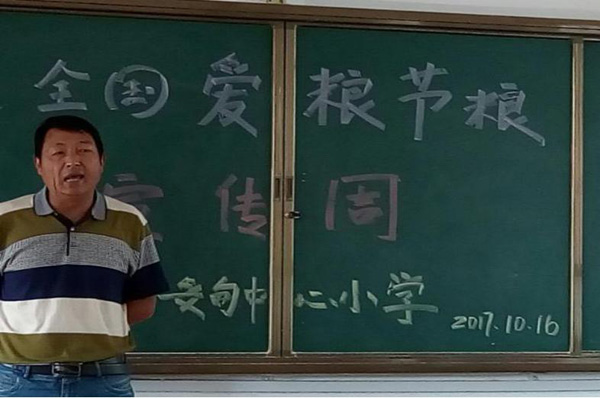 全国爱粮节粮
宣传周
安甸中心小学 2017.10.16